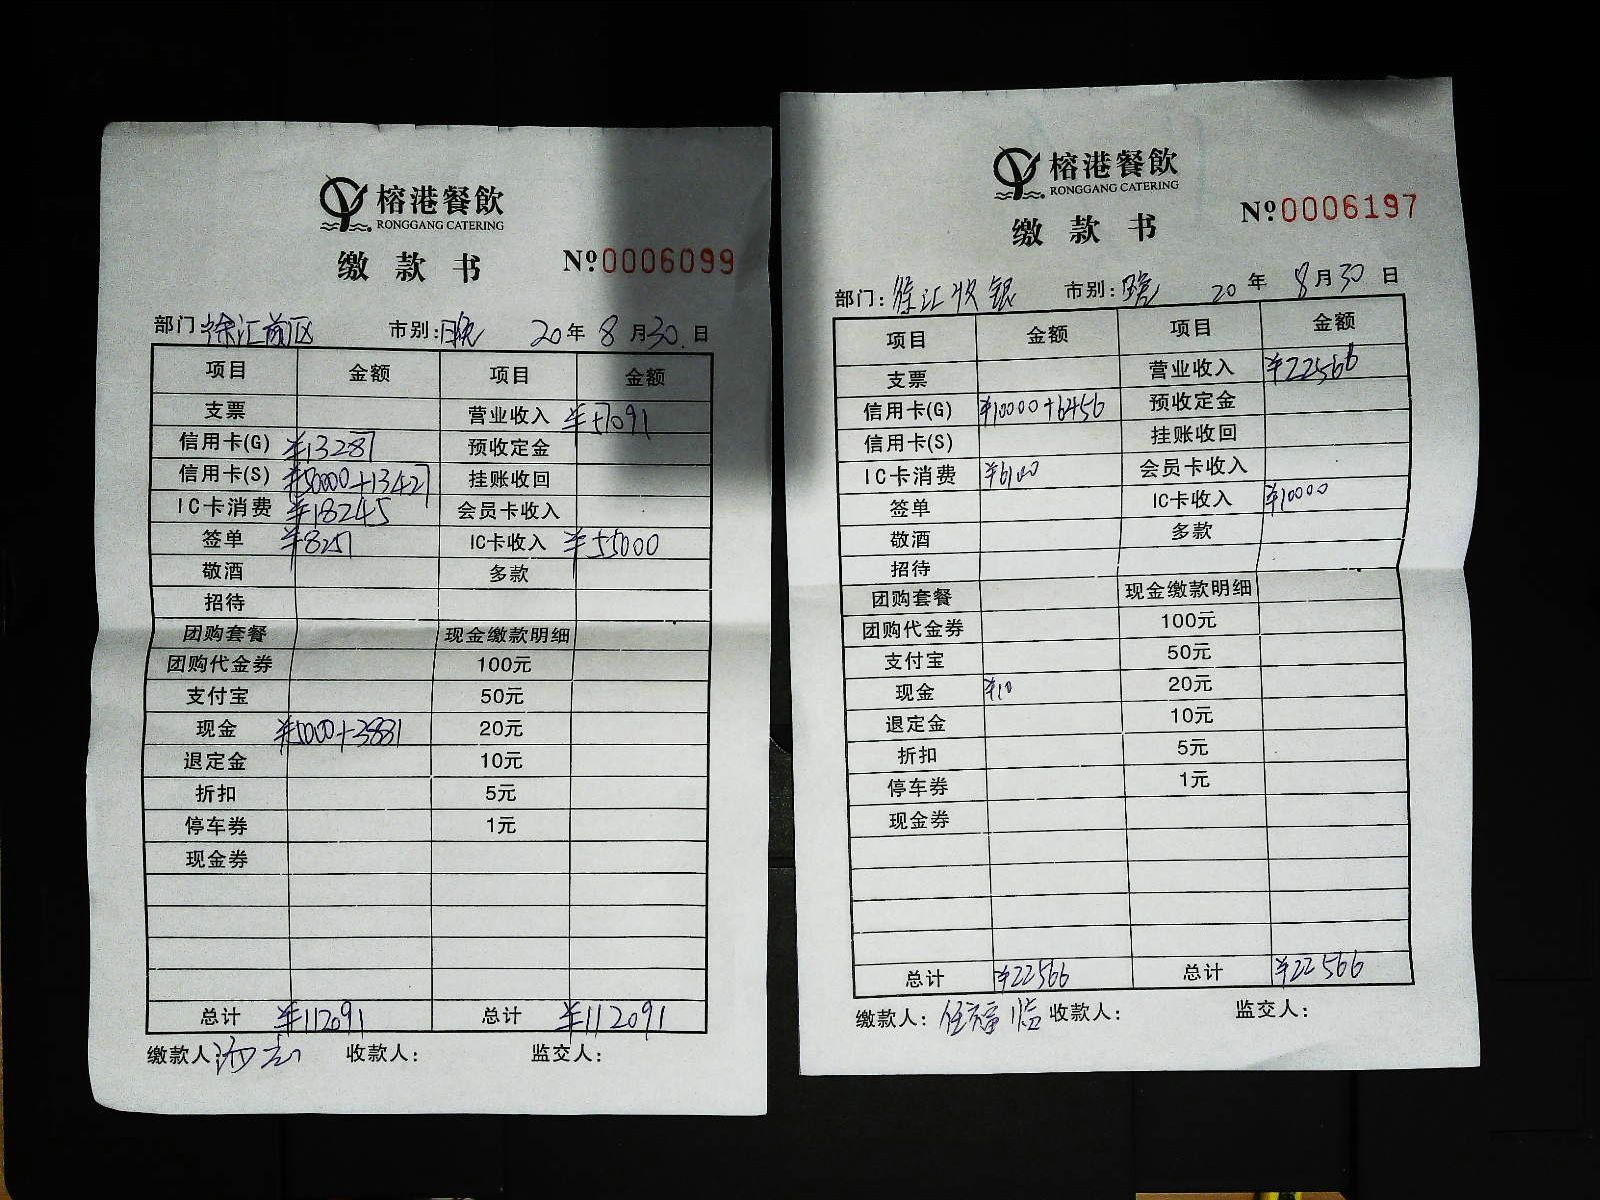 榕港餐飲
RONGGANG CATERING
缴款书
№0006099
部门:徐汇前区 市别:晚 20年8月30日
项目 金额 项目 金额
支票 营业收入 ¥57091
信用卡(G) ¥13287 预收定金
信用卡(S) ¥50000+13427 挂账收回
IC卡消费 ¥18245 会员卡收入
签单 ¥8251 IC卡收入 ¥55000
敬酒 多款
招待
团购套餐 现金缴款明细
团购代金券 100元
支付宝 50元
现金 ¥5000+3881 20元
退定金 10元
折扣 5元
停车券 1元
现金券
总计 ¥112091 总计 ¥112091
缴款人: 收款人: 监交人:
榕港餐飲
RONGGANG CATERING
缴款书
№0006197
部门:徐汇收银 市别:晚 20年8月30日
项目 金额 项目 金额
支票 营业收入 ¥22566
信用卡(G) ¥10000+6456 预收定金
信用卡(S) 挂账收回
IC卡消费 ¥6100 会员卡收入
签单 IC卡收入 ¥10000
敬酒 多款
招待
团购套餐 现金缴款明细
团购代金券 100元
支付宝 50元
现金 ¥10 20元
退定金 10元
折扣 5元
停车券 1元
现金券
总计 ¥22566 总计 ¥22566
缴款人:任福临 收款人: 监交人: